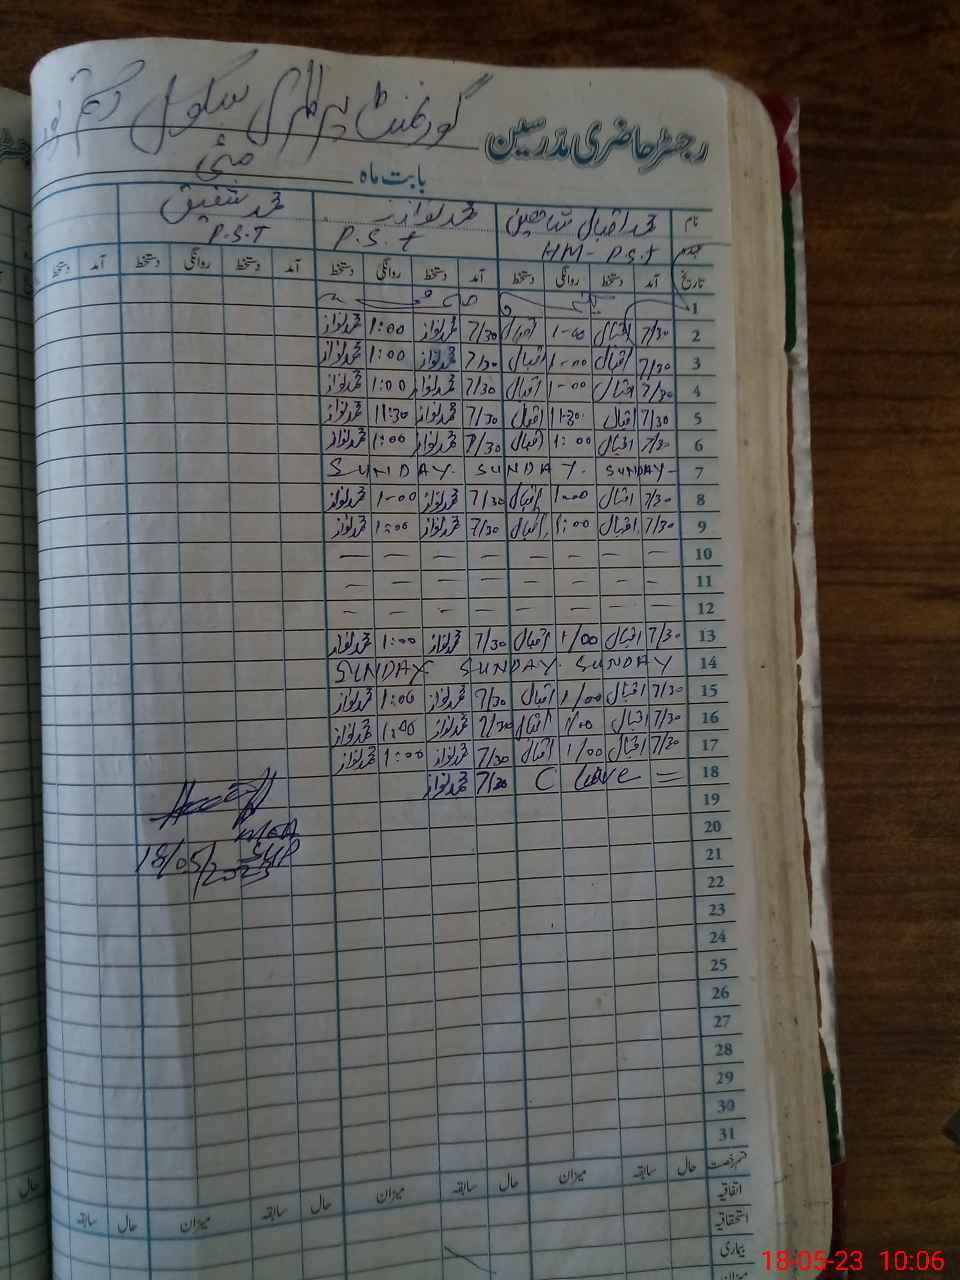 گورنمنٹ پرائمری سکول رحیم
رجسٹر حاضری مدرسین
بابت ماہ مئی
نام محمد اقبال شاھین محمد نواز محمد شفیق
HM - P.S.T P.S.T P.S.T
تاریخ آمد دستخط روانگی دستخط آمد دستخط روانگی دستخط آمد دستخط روانگی دستخط آمد دستخط
1
2 7/30 اقبال 1-00 اقبال 7/30 محمد نواز 1:00 محمد نواز
3 7/30 اقبال 1-00 اقبال 7/30 محمد نواز 1:00 محمد نواز
4 7/30 اقبال 1-00 اقبال 7/30 محمد نواز 1:00 محمد نواز
5 7/30 اقبال 11:30 اقبال 7/30 محمد نواز 11:30 محمد نواز
6 7/30 اقبال 1:00 اقبال 7/30 محمد نواز 1:00 محمد نواز
7 SUNDAY. SUNDAY. SUNDAY-
8 7/30 اقبال 1-00 اقبال 7/30 محمد نواز 1-00 محمد نواز
9 7/30 اقبال 1:00 اقبال 7/30 محمد نواز 1:00 محمد نواز
10 — — — — — — — —
11 — — — — — — — —
12 — — — — — — — —
13 7/30 اقبال 1/00 اقبال 7/30 محمد نواز 1:00 محمد نواز
14 SUNDAY SUNDAY. SUNDAY
15 7/30 اقبال 1/00 اقبال 7/30 محمد نواز 1:00 محمد نواز
16 7/30 اقبال 1/00 اقبال 7/30 محمد نواز 1:00 محمد نواز
17 7/30 اقبال 1/00 اقبال 7/30 محمد نواز 1:00 محمد نواز
18 C leave = 7/30 محمد نواز
19
20
MEA
21
18/05/2023
22
23
24
25
26
27
28
29
30
31
قسم رخصت حال سابقہ میزان حال سابقہ میزان حال سابقہ میزان حال سابقہ
اتفاقیہ
استحقاقیہ
بیماری
میزان
حال
18-05-23 10:06